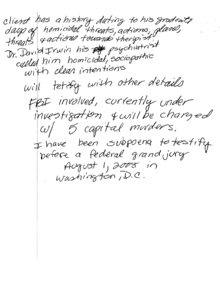 client has a history dating to his graduate
days of homicidal threats, actions, plans,
threats & actions towards therapist.
Dr. David Irwin his psychiatrist
called him homicidal, sociopathic
with clear intentions
will testify with other details
FBI involved, currently under
investigation & will be charged
w/ 5 capital murders.
I have been subpoena to testify
before a federal grand jury
August 1, 2008 in
Washington, D.C.